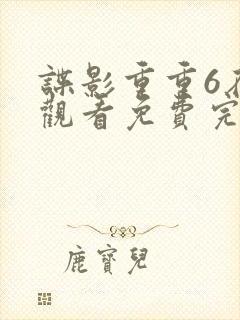 諜影重重6在
觀看免費完
鹿寶兒